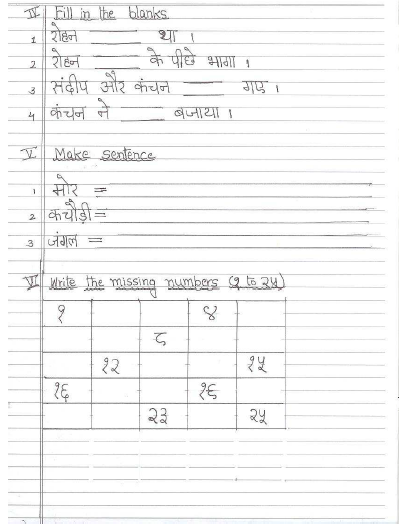 IV Fill in the blanks
1 रोहन ______ था ।
2 रोहन ______ के पीछे भागा ।
3 संदीप और कंचन ______ गए ।
4 कंचन ने ______ बजाया ।
V Make sentence
1 मोर =
2 कचौड़ी =
3 जंगल =
VI Write the missing numbers (१ to २५)
१ ४
८
१२ १५
१६ १९
२३ २५